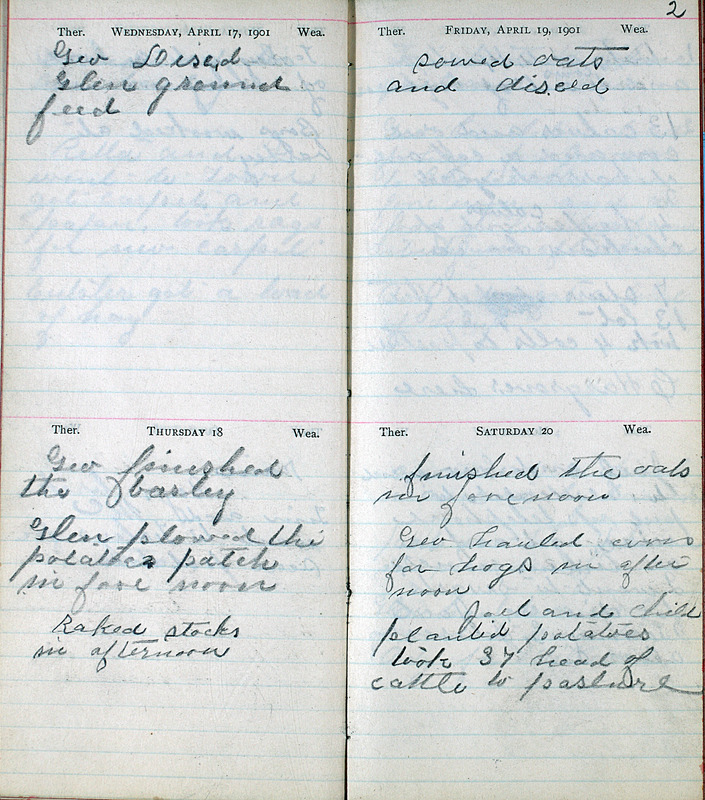 2
Ther. WEDNESDAY, APRIL 17, 1901 Wea.
Geo Disced
Glen ground
feed
Ther. THURSDAY 18 Wea.
Geo finished
the barley
Glen plowed the
potatoe patch
in fore noon
Raked stocks
in afternoon
Ther. FRIDAY, APRIL 19, 1901 Wea.
sowed oats
and disced
Ther. SATURDAY 20 Wea.
finished the oats
in fore noon
Geo hauled corn
for hogs in after
noon
and
planted potatoes
took 37 head of
cattle to pasture